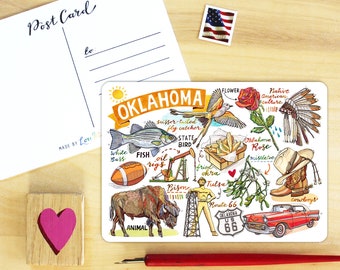 Post Card
to
OKLAHOMA
FLOWER
Native
american
culture
scissor-tailed
fly catcher
STATE
BIRD
Oklahoma
Rose
White
Bass
FISH
oil
rigs
fried
okra
mistletoe
cowboys
Bison
Tulsa
Route 66
ANIMAL
OKLAHOMA
US
66